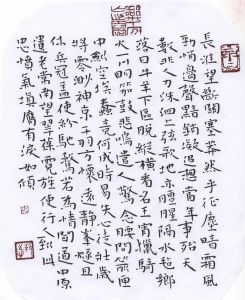 長淮望斷關塞莽然平征塵暗霜風
勁悄邊聲黯銷凝追想當年事殆天
數非人力洙泗上弦歌地亦羶腥隔水氈鄉
落日牛羊下區脫縱橫看名王宵獵騎
火一川明笳鼓悲鳴遣人驚念腰間箭匣
中劍空埃蠹竟何成時易失心徒壯歲
將零渺神京干羽方懷遠靜烽燧且
休兵冠蓋使紛馳騖若為情聞道中原
遺老常南望翠葆霓旌使行人到此
忠憤氣填膺有淚如傾